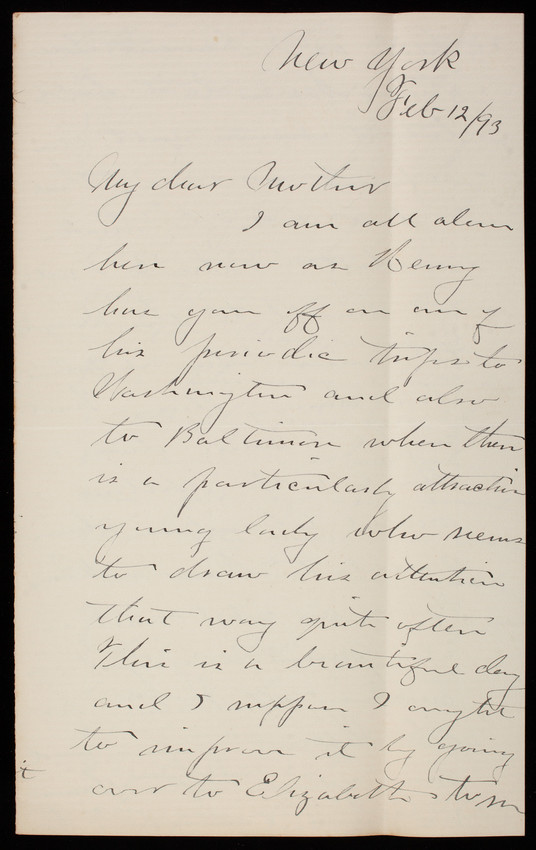 New York
Feb 12/93
My dear Mother
I am all alone
here now as Kenny
has gone off on one of
his periodic trips to
Washington and also
to Baltimore where there
is a particularly attractive
young lady who seems
to draw his attention
that way quite often
This is a beautiful day
and I suppose I ought
to improve it by going
over to Elizabeth to see